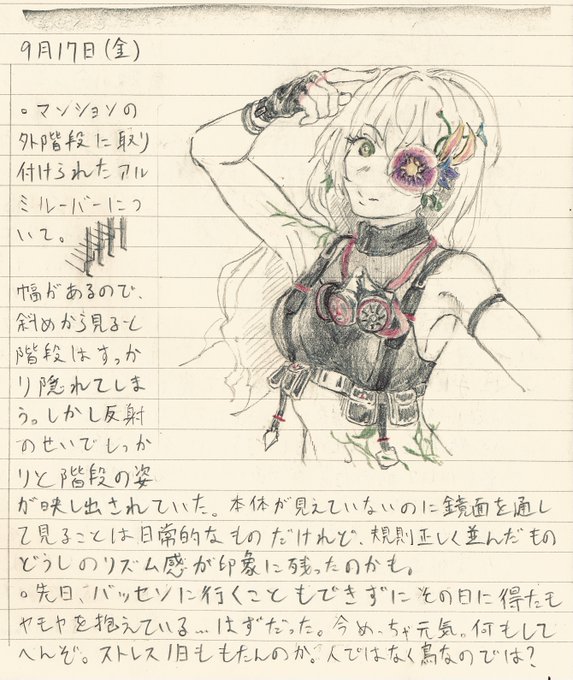 9月17日(金)
。マンションの
外階段に取り
付けられたアル
ミルーバーにつ
いて。
幅があるので、
斜めから見ると
階段はすっか
り隠れてしま
う。しかし反射
のせいでしっか
りと階段の姿
が映し出されていた。本体が見えていないのに鏡面を通し
て見ることは日常的なものだけれど、規則正しく並んだもの
どうしのリズム感が印象に残ったのかも。
。先日、バッセンに行くこともできずにその日に得たモ
ヤモヤを抱えている…はずだった。今めっちゃ元気。何もして
へんぞ。ストレス1日ももたんのか。人ではなく鳥なのでは?